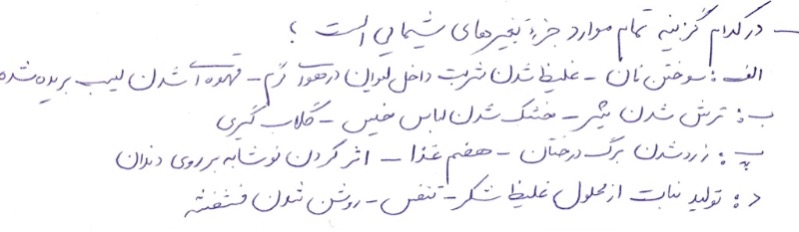 - در کدام گزینه تمام موارد جزء تغییرهای شیمیایی است ؟
الف : سوختن نان - غلیظ شدن شربت داخل لیوان در هوای گرم - قهوه ای شدن سیب بریده شده
ب : ترش شدن شیر - خشک شدن لباس خیس - گلاب گیری
پ : زرد شدن برگ درختان - هضم غذا - اثر کردن نوشابه بر روی دندان
د : تولید نبات از محلول غلیظ شکر - تنفس - روشن شدن فشفشه